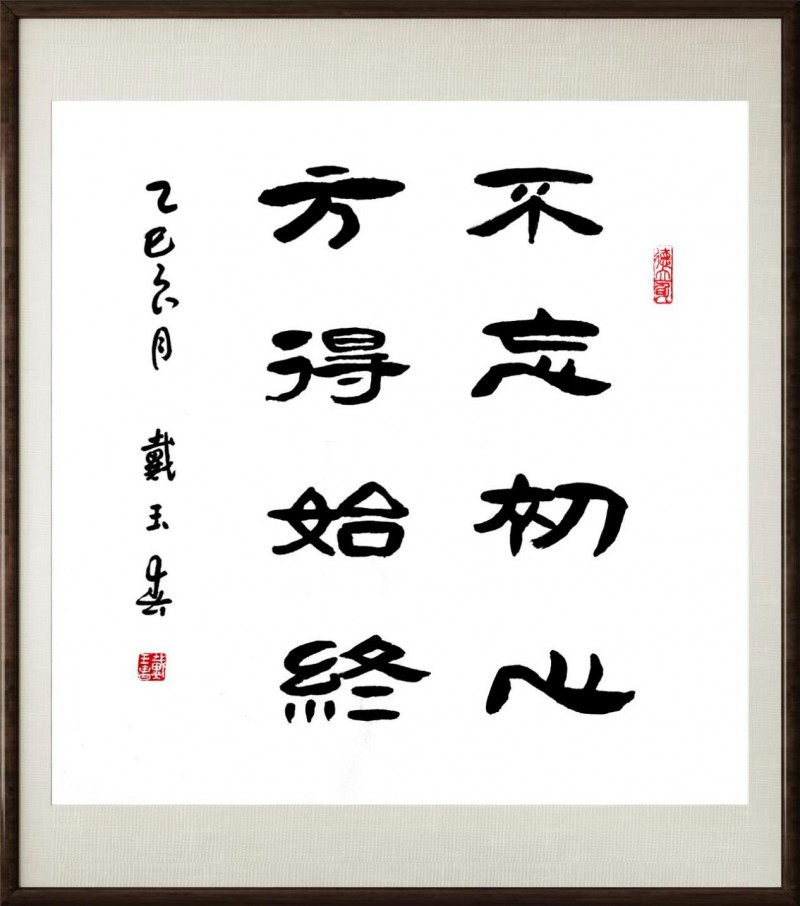 不忘初心
方得始終
乙巳六月 戴玉